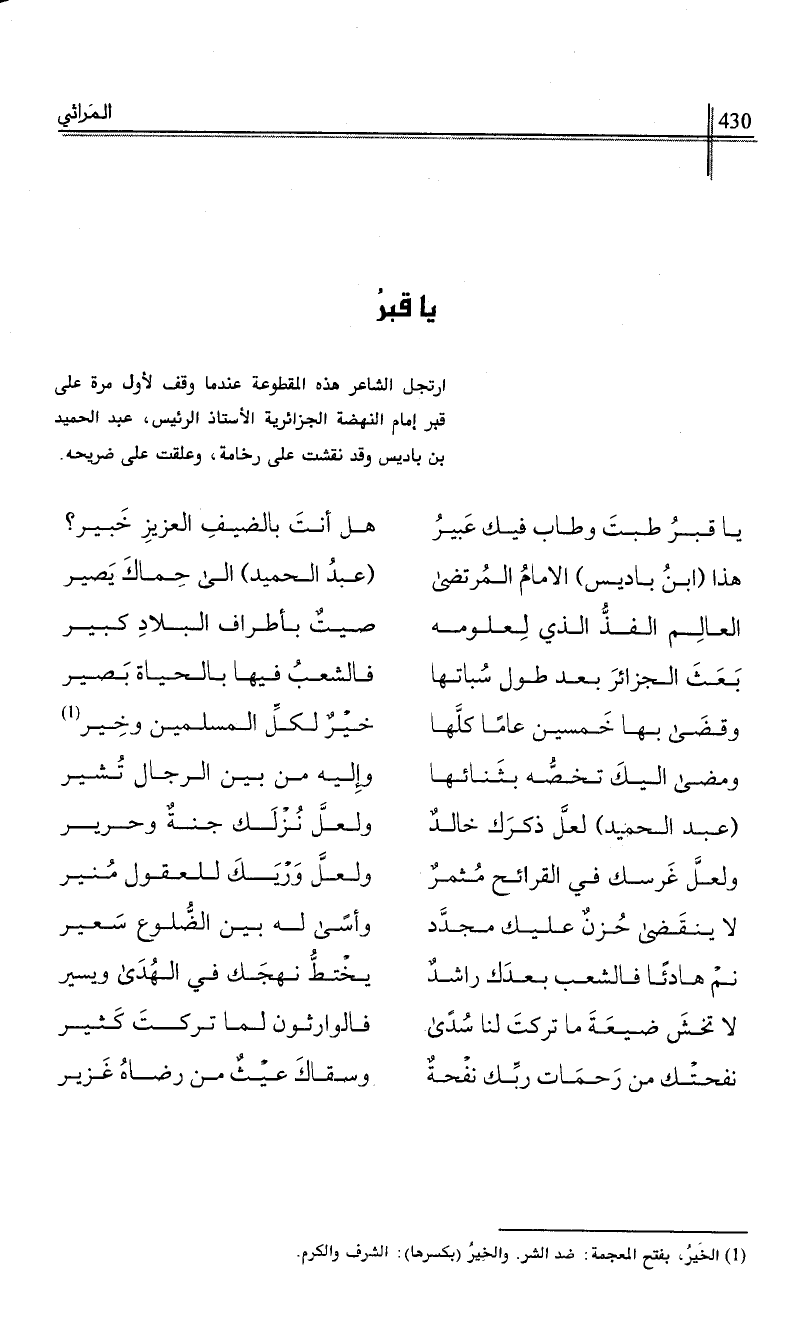 430
المَراثي
يا قبرُ
ارتجل الشاعر هذه المقطوعة عندما وقف لأول مرة على
قبر إمام النهضة الجزائرية الأستاذ الرئيس، عبد الحميد
بن باديس وقد نقشت على رخامة، وعلقت على ضريحه.
يا قبرُ طبتَ وطاب فيك عَبيرُ هل أنتَ بالضيفِ العزيزِ خَبير؟
هذا (ابنُ باديس) الامامُ المُرتضىٰ (عبدُ الحميد) الىٰ حِماكَ يَصير
العالِم الفذُّ الذي لِعلومه صيتٌ بأطراف البلادِ كبير
بَعَثَ الجزائرَ بعد طول سُباتها فالشعبُ فيها بالحياة بَصير
وقضَىٰ بها خَمسين عامًا كلَّها خيْرٌ لكلِّ المسلمين وخِير(1)
ومضىٰ اليكَ تخصُّه بثَنائها وإليه من بين الرجال تُشير
(عبد الحميد) لعلَّ ذكرَك خالدٌ ولعلَّ نُزْلَك جنةٌ وحرير
ولعلَّ غَرسك في القرائح مُثمرٌ ولعلَّ وَرْيَكَ للعقول مُنير
لا ينقَضىٰ حُزنٌ عليك مجدَّد وأسًىٰ له بين الضُّلوع سَعير
نمْ هادئًا فالشعب بعدَك راشدٌ يختطُّ نهجَك في الهُدَىٰ ويسير
لا تخشَ ضيعَةَ ما تركتَ لنا سُدًىٰ فالوارثون لما تركتَ كَثير
نفحتْك من رَحمَات ربِّك نفْحةٌ وسقاكَ غيْثٌ من رضاهُ غَزير
(1) الخَيرُ، بفتح المعجمة: ضد الشر. والخِيرُ (بكسرها): الشرف والكرم.